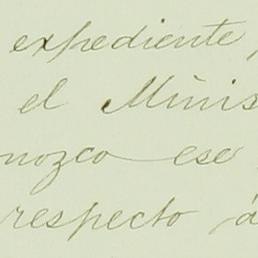 expediente,
el Minis
nozco ese
respecto á